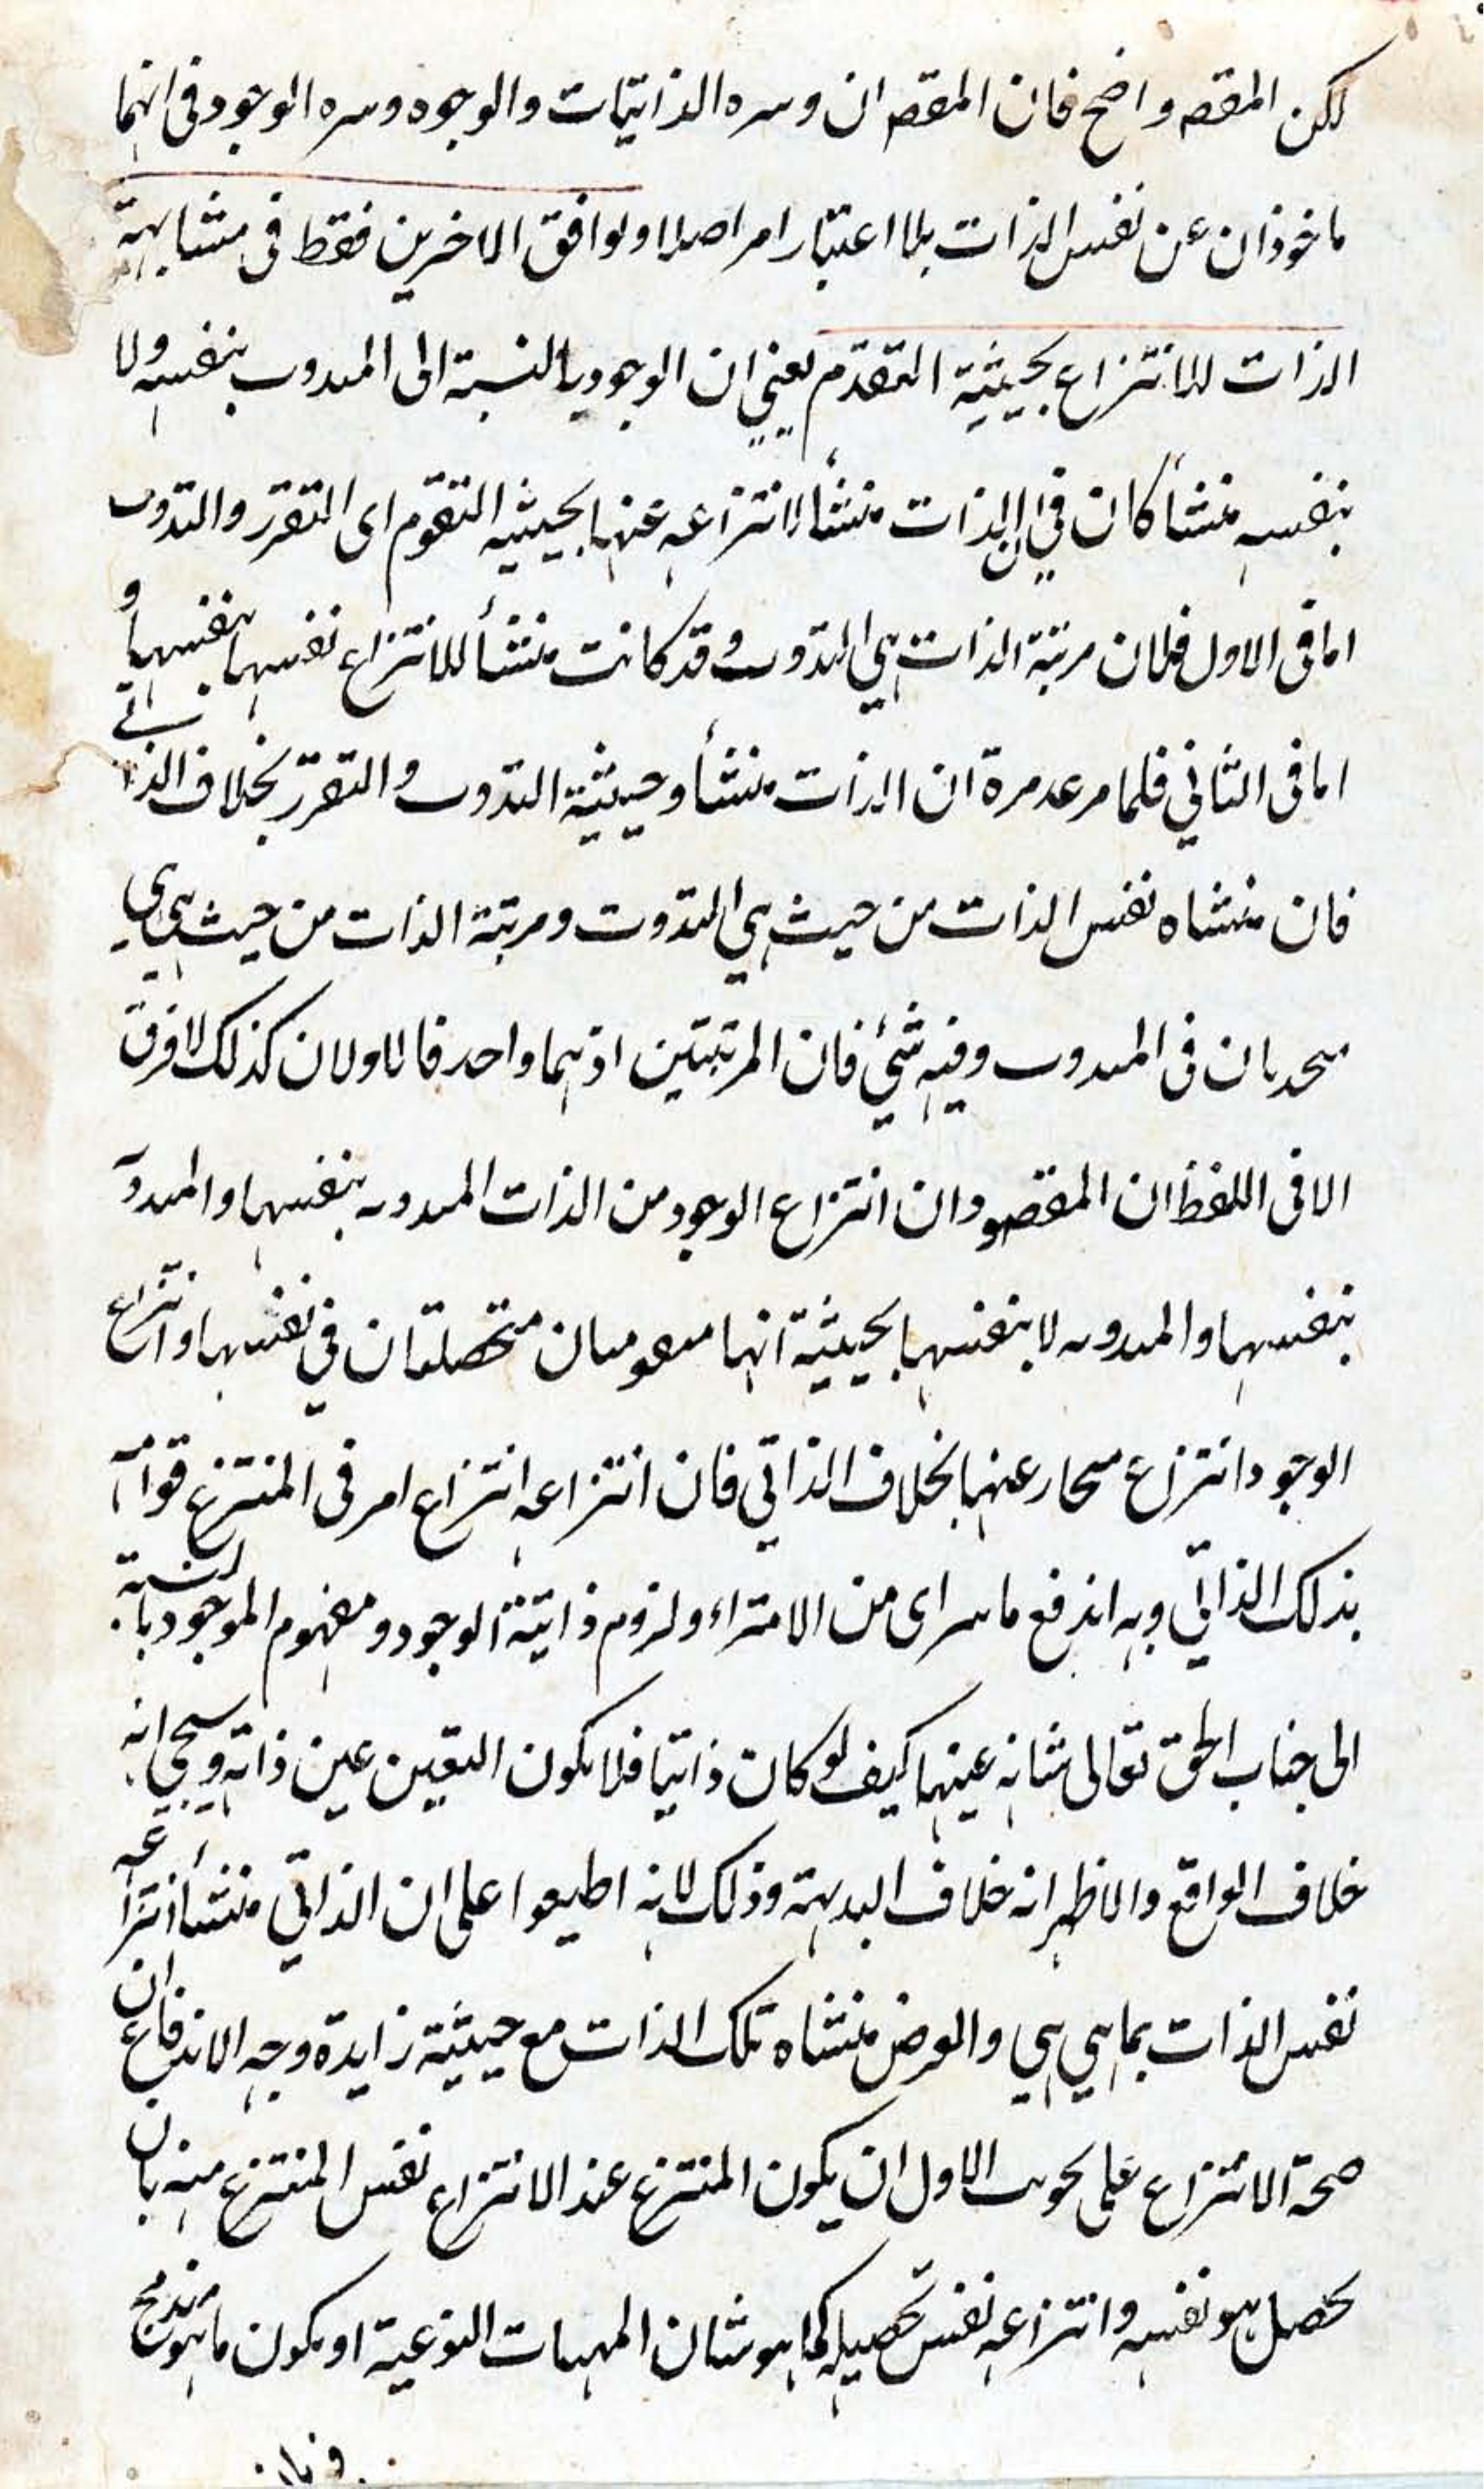 لكن المقصه واضح فان المقصه ان وسره الذاتيات والوجود وسره الوجود فى انهما
ماخوذان عن نفس الذات بلا اعتبار امر اصلا ولوافق الاخرين فقط فى مشابهة
الذات للانتزاع بحيثية التقدم يعني ان الوجود بالنسبة الى المدوب بنفسه ولا
بنفسه منشأ كان في ان الذات منشأ لانتزاعه عنها بحيثيه التقوم اى التقرر والتدوب
اما فى الاول فلان مرتبة الذات هي التدوب وقد كانت منشأ للانتزاع نفسها بنفسها و
اما فى الثاني فلما مر عد مرة ان الذات منشأ وحيثية التدوب والتقرر بخلاف الذاتي
فان منشاه نفس الذات من حيث هي التدوت ومرتبة الذات من حيث هي هي
متحدتان فى المدوب وفيه شئ فان المرتبتين اذ هما واحد فالاولان كذلك لا فرق
الا فى اللفظ ان المقصود ان انتزاع الوجود من الذات المدوبه بنفسها والمدوبه
بنفسها والمدوبه لا بنفسها بحيثية انها مفهومان متحصلتان في نفسها وانتزاع
الوجود انتزاع محار عنها بخلاف الذاتي فان انتزاعه انتزاع امر فى المنتزع قوامه
بذلك الذاتي وبه اندفع ما سراى من الامتراء ولزوم ذاتية الوجود ومفهوم الموجود بالنسبة
الى جناب الحق تعالى شانه عينها كيف لو كان ذاتيا فلا يكون التعين عين ذاته وسبحانه
خلاف الواقع والاظهر انه خلاف البديهة وذلك لانه اطبعوا على ان الذاتي منشأ انتزاعه
نفس الذات بما هي هي والعرض منشاه تلك الذات مع حيثية زايدة وجه الاندفاع ان
صحة الانتزاع على نحوين الاول ان يكون المنتزع عند الانتزاع نفس المنتزع منه بان
تحصل هو نفسه وانتزاعه نفس تحصيله كما هو شان المهيات النوعية او يكون ما هو مندمج